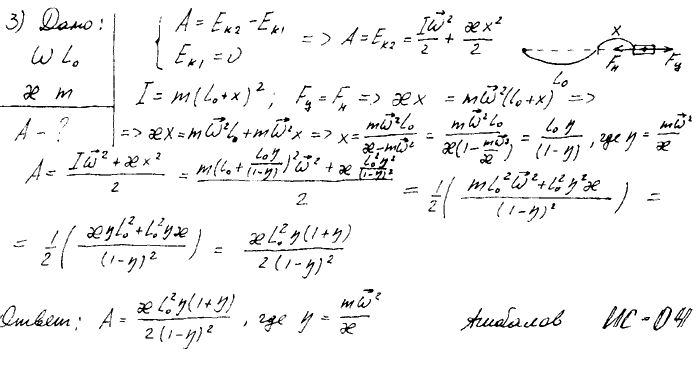 3) Дано: { A = Eк2 - Eк1 => A = Eк2 = Iω⃗²/2 + æx²/2
ω L₀ { Eк1 = 0
æ m I = m(L₀+x)²; Fц = Fн => æx = mω⃗²(L₀+x) =>
A - ? => æx = mω⃗²L₀ + mω⃗²x => x = mω⃗²L₀/(æ - mω⃗²) = mω⃗²L₀/(æ(1 - mω⃗²/æ)) = L₀η/(1-η), где η = mω⃗²/æ
A = (Iω⃗² + æx²)/2 = (m(L₀ + L₀η/(1-η))²ω⃗² + æ L₀²η²/(1-η)²)/2 = 1/2 ((mL₀²ω⃗² + L₀²η²æ)/(1-η)²) =
= 1/2 ((æηL₀² + L₀²η²æ)/(1-η)²) = æL₀²η(1+η)/(2(1-η)²)
Ответ: A = æL₀²η(1+η)/(2(1-η)²), где η = mω⃗²/æ
x
Fн Fц
L₀